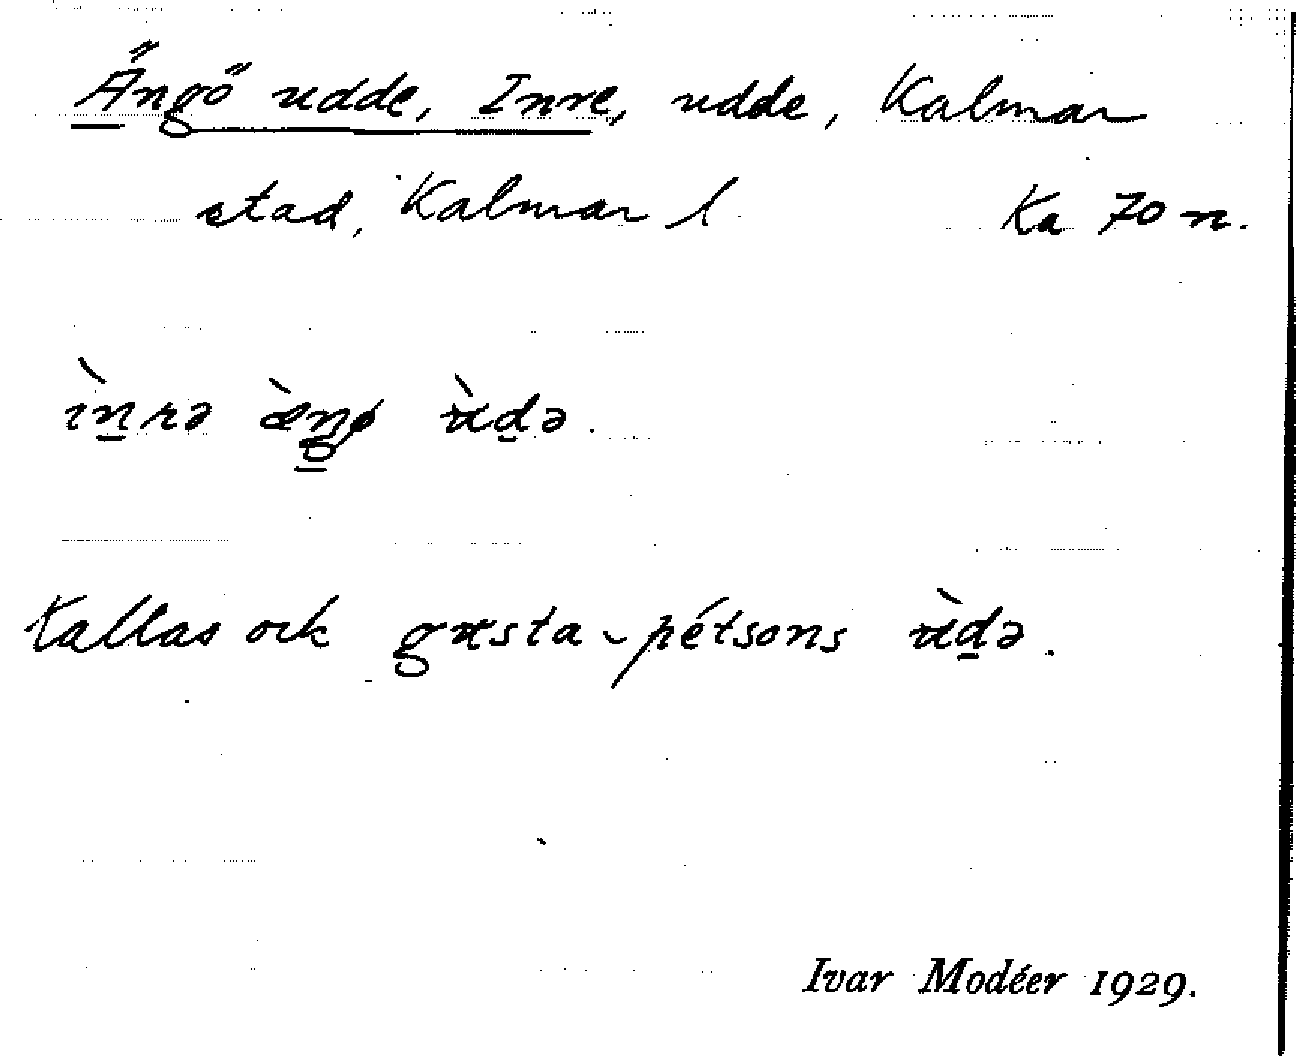 Ängö udde, Inre, udde, Kalmar
stad, Kalmar l Ka 70 n.
ìn̲rə æ̀ŋ̲ø ùd̲ə.
Kallas ock gusta-pétsons ùd̲ə.
Ivar Modéer 1929.